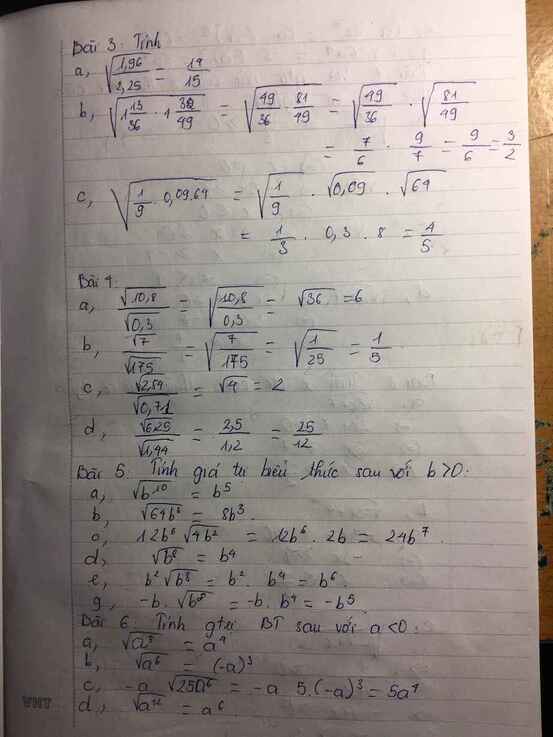 Bài 3: Tính
a, √(1,96/2,25) = 14/15
b, √(1 13/36 · 1 32/49) = √(49/36 · 81/49) = √(49/36) · √(81/49)
= 7/6 · 9/7 = 9/6 = 3/2
c, √(1/9 · 0,09.64) = √(1/9) · √0,09 · √64
= 1/3 · 0,3 . 8 = 4/5
Bài 4:
a, √10,8/√0,3 = √(10,8/0,3) = √36 = 6
b, √7/√175 = √(7/175) = √(1/25) = 1/5
c, /√0,71 = √4 = 2
d, √6,25/√1,44 = 2,5/1,2 = 25/12
Bài 5: Tính giá trị biểu thức sau với b>0:
a, √b¹⁰ = b⁵
b, √64b⁶ = 8b³
c, 12b⁶ √4b² = 12b⁶ . 2b = 24b⁷
d, √b⁸ = b⁴
e, b² √b⁸ = b² . b⁴ = b⁶
g, -b . √b⁸ = -b . b⁴ = -b⁵
Bài 6: Tính gtrị BT sau với a<0:
a, √a⁸ = a⁴
b, √a⁶ = (-a)³
c, -a √25a⁶ = -a 5.(-a)³ = 5a⁴
d, √a¹² = a⁶
VHT